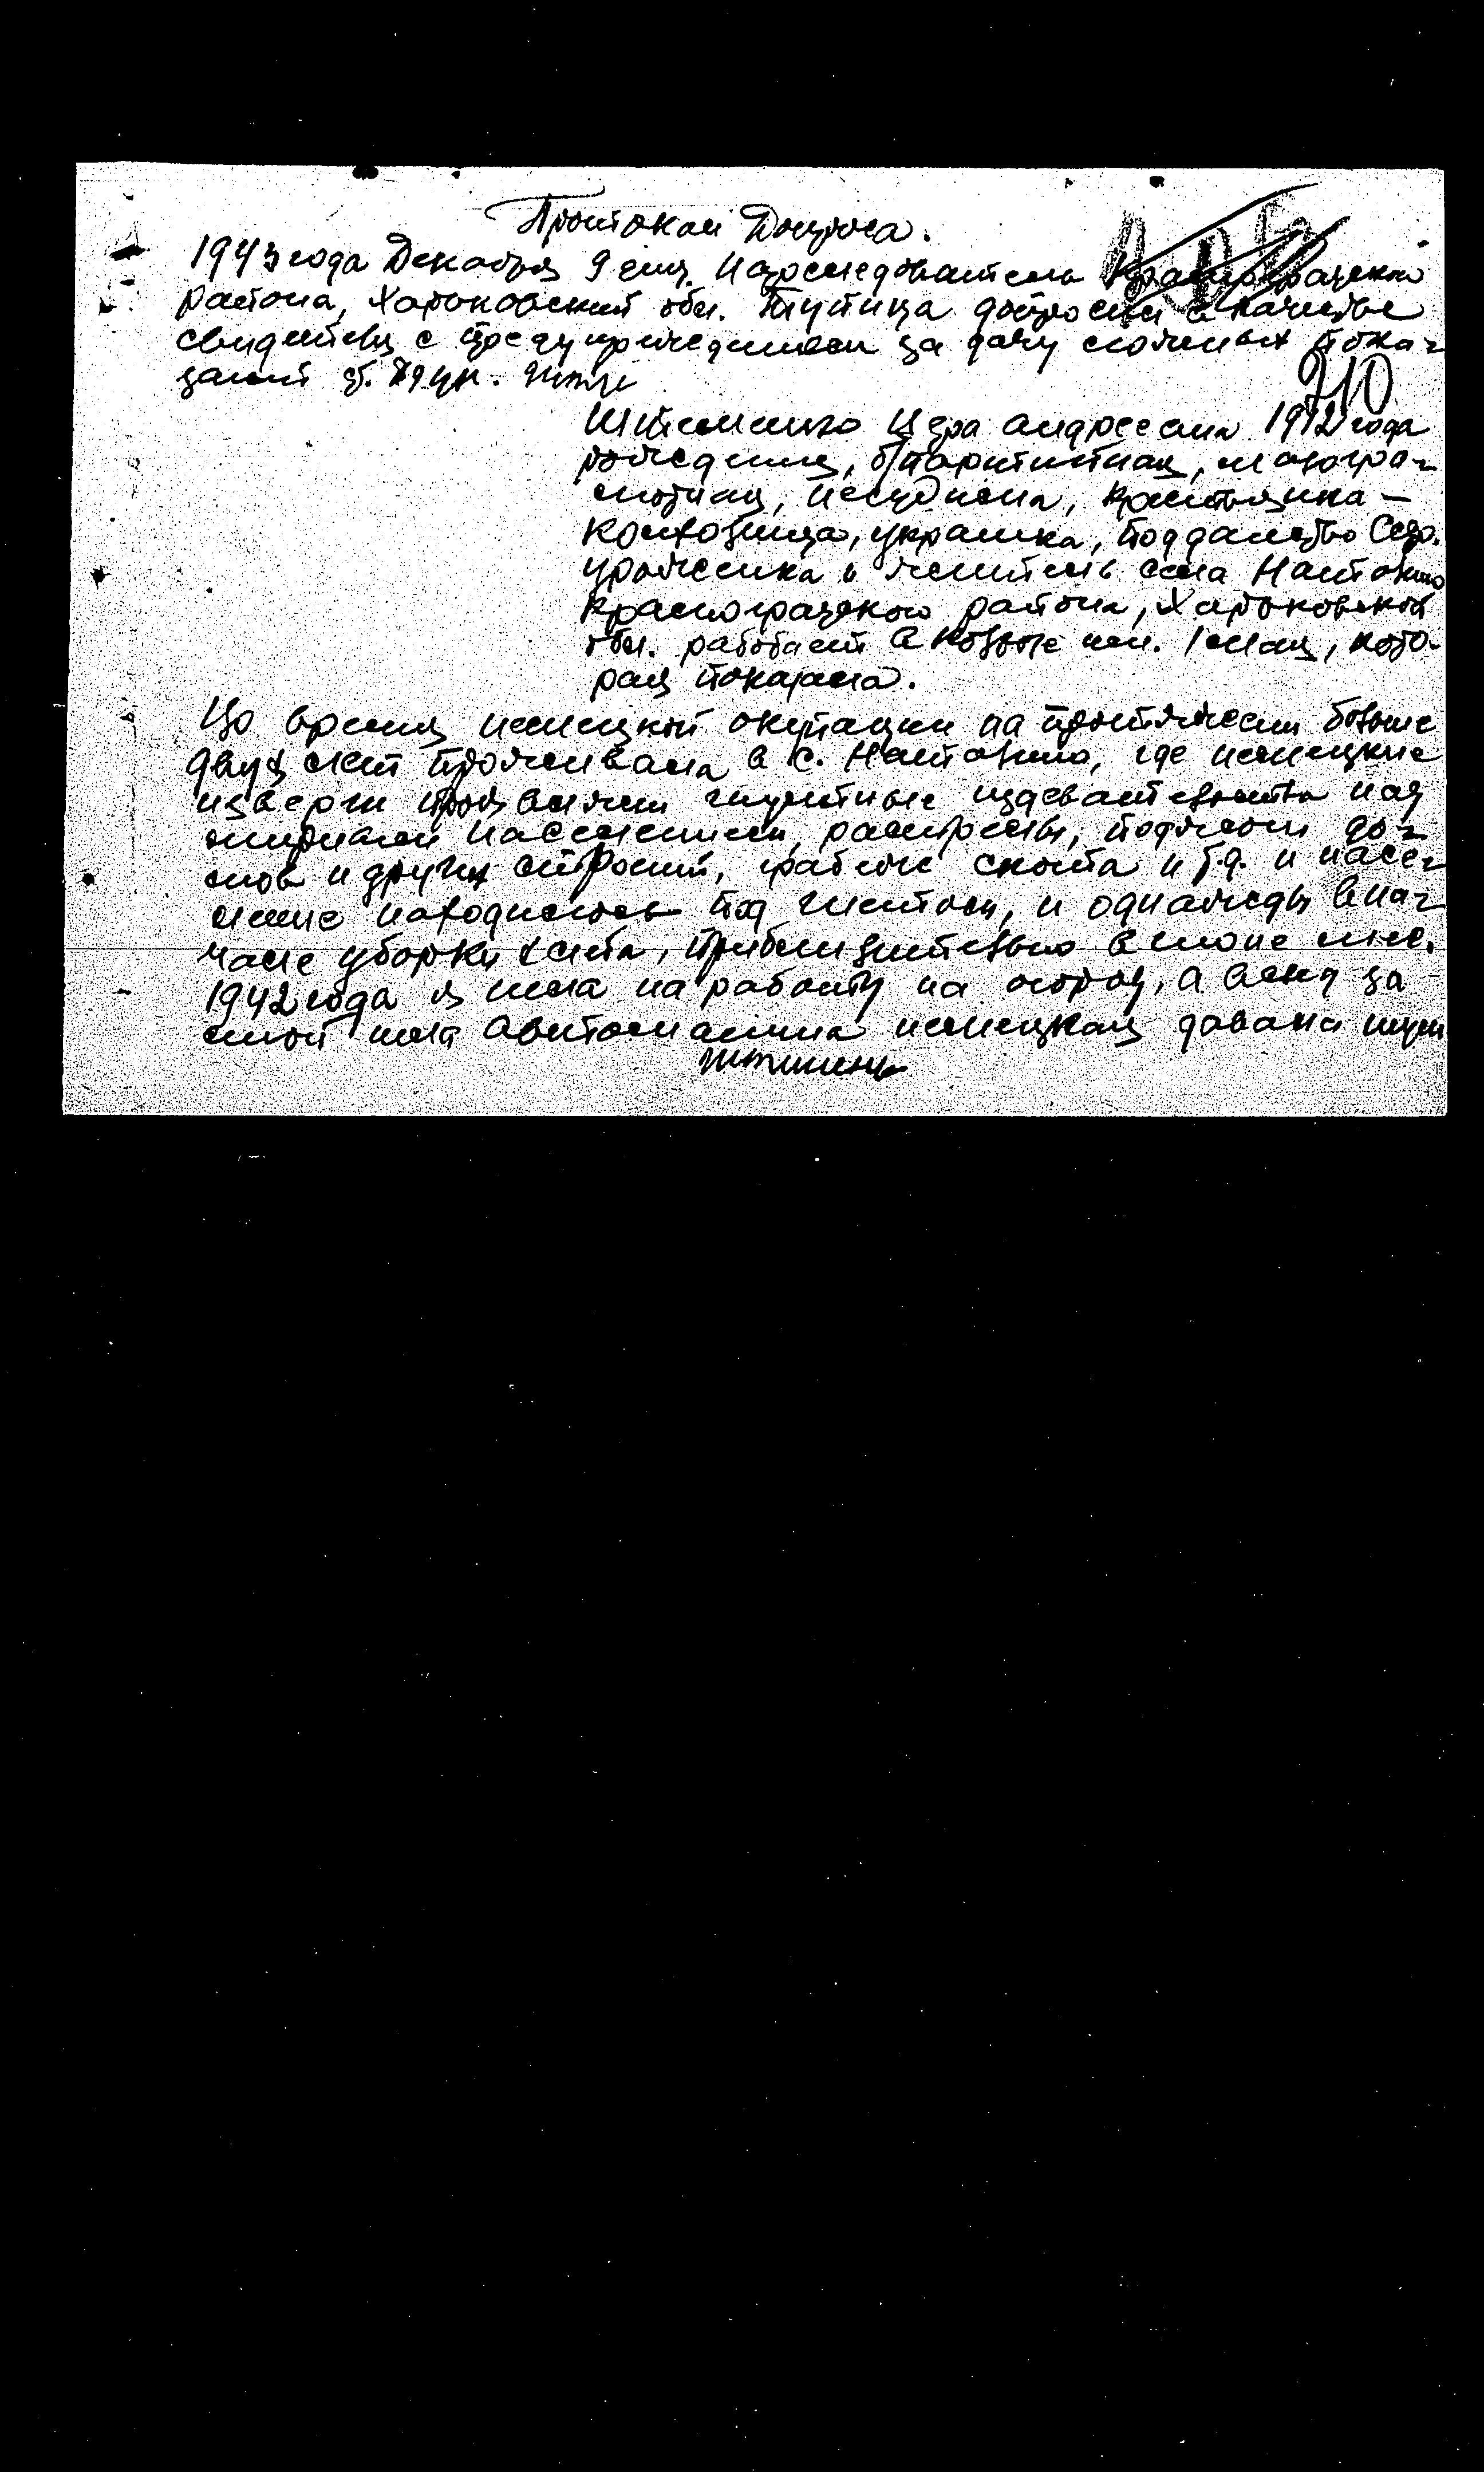 Протокол Допроса.
1943 года Декабря 9 дня Нарследователь Красноградского
района, Харьковской обл. допросил в качестве
свидетеля с предупреждением за дачу ложных пока-
заний ст. 89 ук.
210
Вера Андреевна 1912 года
рождения, б/партийная, малогра-
мотная, несудима, крестьянка -
колхозница, украинка, подданство Ссср.
уроженка и житель села Натальино
Красноградского района, Харьковской
обл. работает в колхозе им. 1 мая, кото-
рая показала.
Во время немецкой окупации на протяжении больше
двух лет проживала в с. Натальино, где немецкие
изверги проявляли издевательства над
мирным населением, расстрелы, поджоги до-
мов и других строений, грабежи скота и т.д. и насе-
ление находилось под гнетом, и однажды в на-
чале уборки хлеба, приблизительно в июне м-це.
1942 года я шла на работу на огород, а вслед за
мной шла автомашина немецкая давала